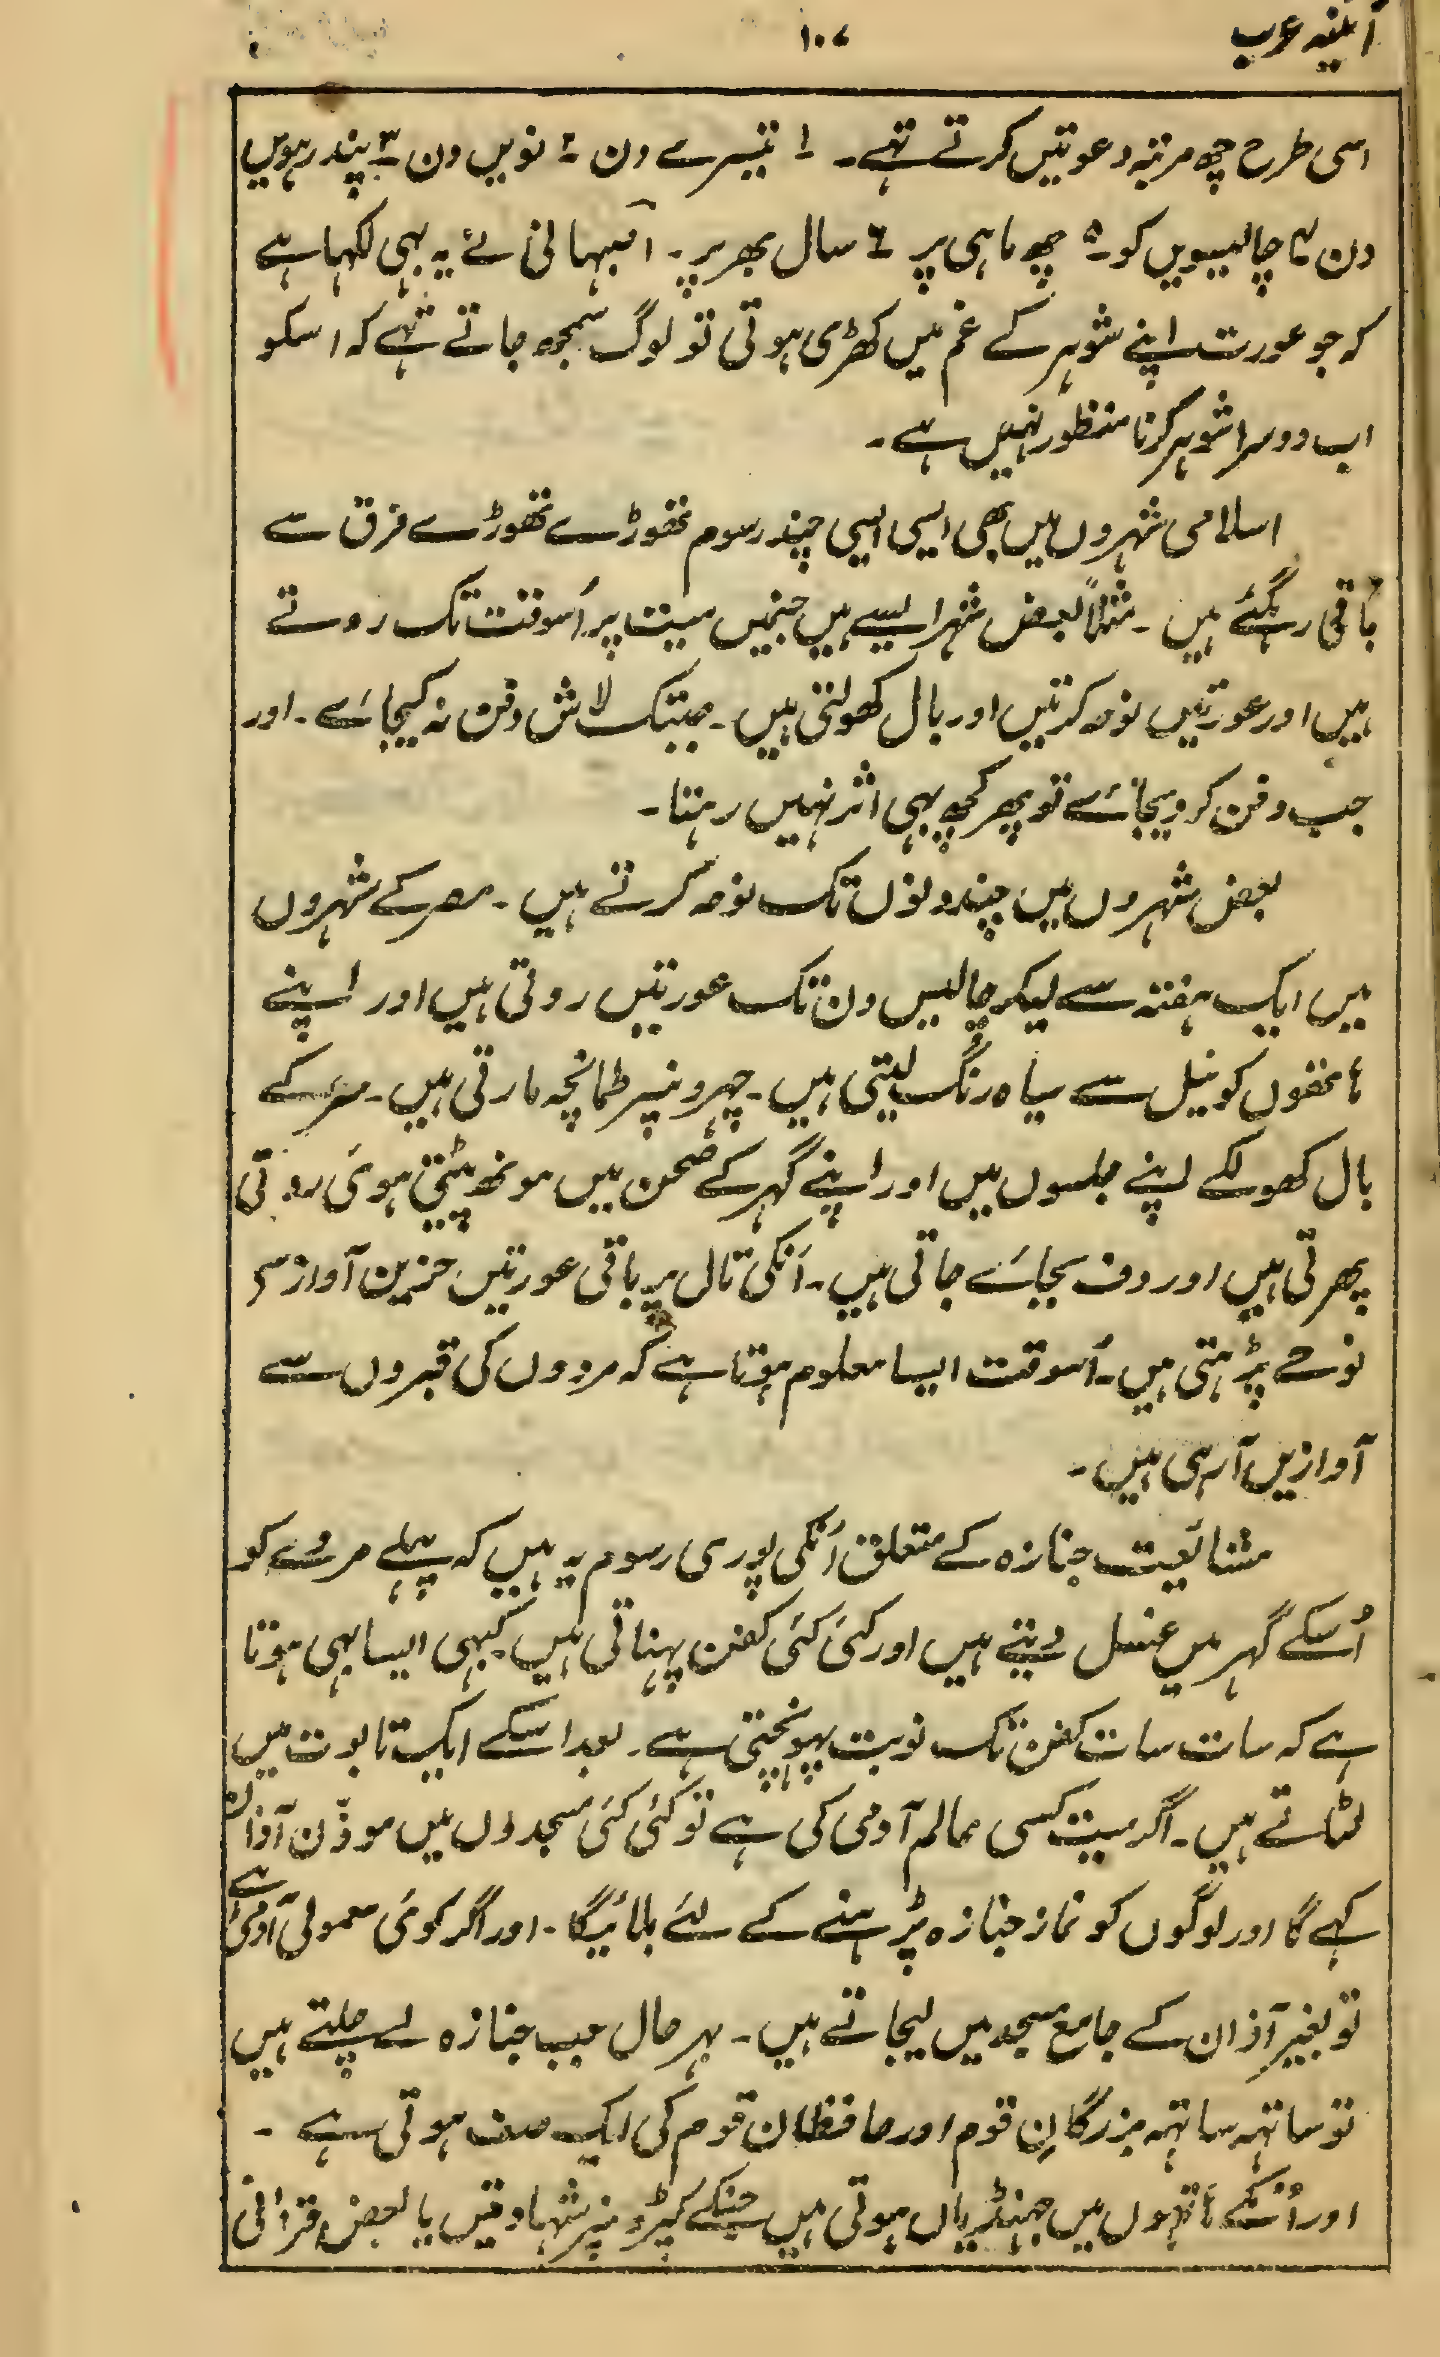 آئینہ عرب
۱۰۷
اسی طرح چھ مرتبہ دعوتیں کرتے تہے۔ ۱ تیسرے دن ۲ نویں دن ۳ پندرہویں
دن ۴ چالیسویں کو ۵ چھ ماہی پر ۶ سال بھر پر۔ اَبہانی نے یہ بہی لکہا ہے
کہ جو عورت اپنے شوہر کے غم میں کھڑی ہوتی تو لوگ سمجھ جاتے تہے کہ اسکو
اب دوسرا شوہر کرنا منظور نہیں ہے۔
اسلامی شہروں میں بھی ایسی ایسی چند رسوم تھوڑے تھوڑے فرق سے
باقی رہ گئے ہیں۔ مثلاً بعض شہر ایسے ہیں جنمیں میت پر اُسوقت تک روتے
ہیں اور عورتیں نوحہ کرتیں اور بال کھولتی ہیں۔ جبتک لاش دفن نہ کیجاے۔ اور
جب دفن کر دیجائے تو پھر کچھ بہی اثر نہیں رہتا۔
بعض شہروں میں چند دنوں تک نوحہ کرتے ہیں۔ مصر کے شہروں
میں ایک ہفتہ سے لیکر چالیس دن تک عورتیں روتی ہیں اور اپنے
ہاتھوں کو نیل سے سیاہ رنگ لیتی ہیں۔ چہرونپر طمانچہ مارتی ہیں۔ سر کے
بال کھولکے اپنے جلسوں میں اور اپنے گہر کے صحن میں مونھ پٹیتی ہوئی روتی
پھرتی ہیں اور دف بجائے جاتی ہیں۔ اُنکی تال پر باقی عورتیں حزین آواز سے
نوحے پڑہتی ہیں۔ اُسوقت ایسا معلوم ہوتا ہے کہ مردوں کی قبروں سے
آوازیں آرہی ہیں۔
مشائعیت جنازہ کے متعلق اُنکی پوری رسوم یہ ہیں کہ پہلے مردے کو
اُسکے گہر میں غسل دیتے ہیں اور کئی کئی کفن پہناتی ہیں کبہی ایسا بہی ہوتا
ہے کہ سات سات کفن تک نوبت پہونچتی ہے۔ بعد اسکے ایک تابوت میں
لٹاتے ہیں۔ اگر میت کسی عالم آدمی کی ہے تو کئی کئی مسجدوں میں موذّن آذان
کہے گا اور لوگوں کو نماز جنازہ پڑہنے کے لئے بلائیگا۔ اور اگر کوئی معمولی آدمی ہے
تو بغیر آذان کے جامع مسجد میں لیجاتے ہیں۔ بہر حال جب جنازہ لے چلتے ہیں
تو ساتہہ ساتہہ بزرگانِ قوم اور حافظان قوم کی ایک صف ہوتی ہے۔
اور اُنکے ہاتہوں میں جہنڈیاں ہوتی ہیں جنکے کپڑونپر شہادتیں یا بعض قرآنی